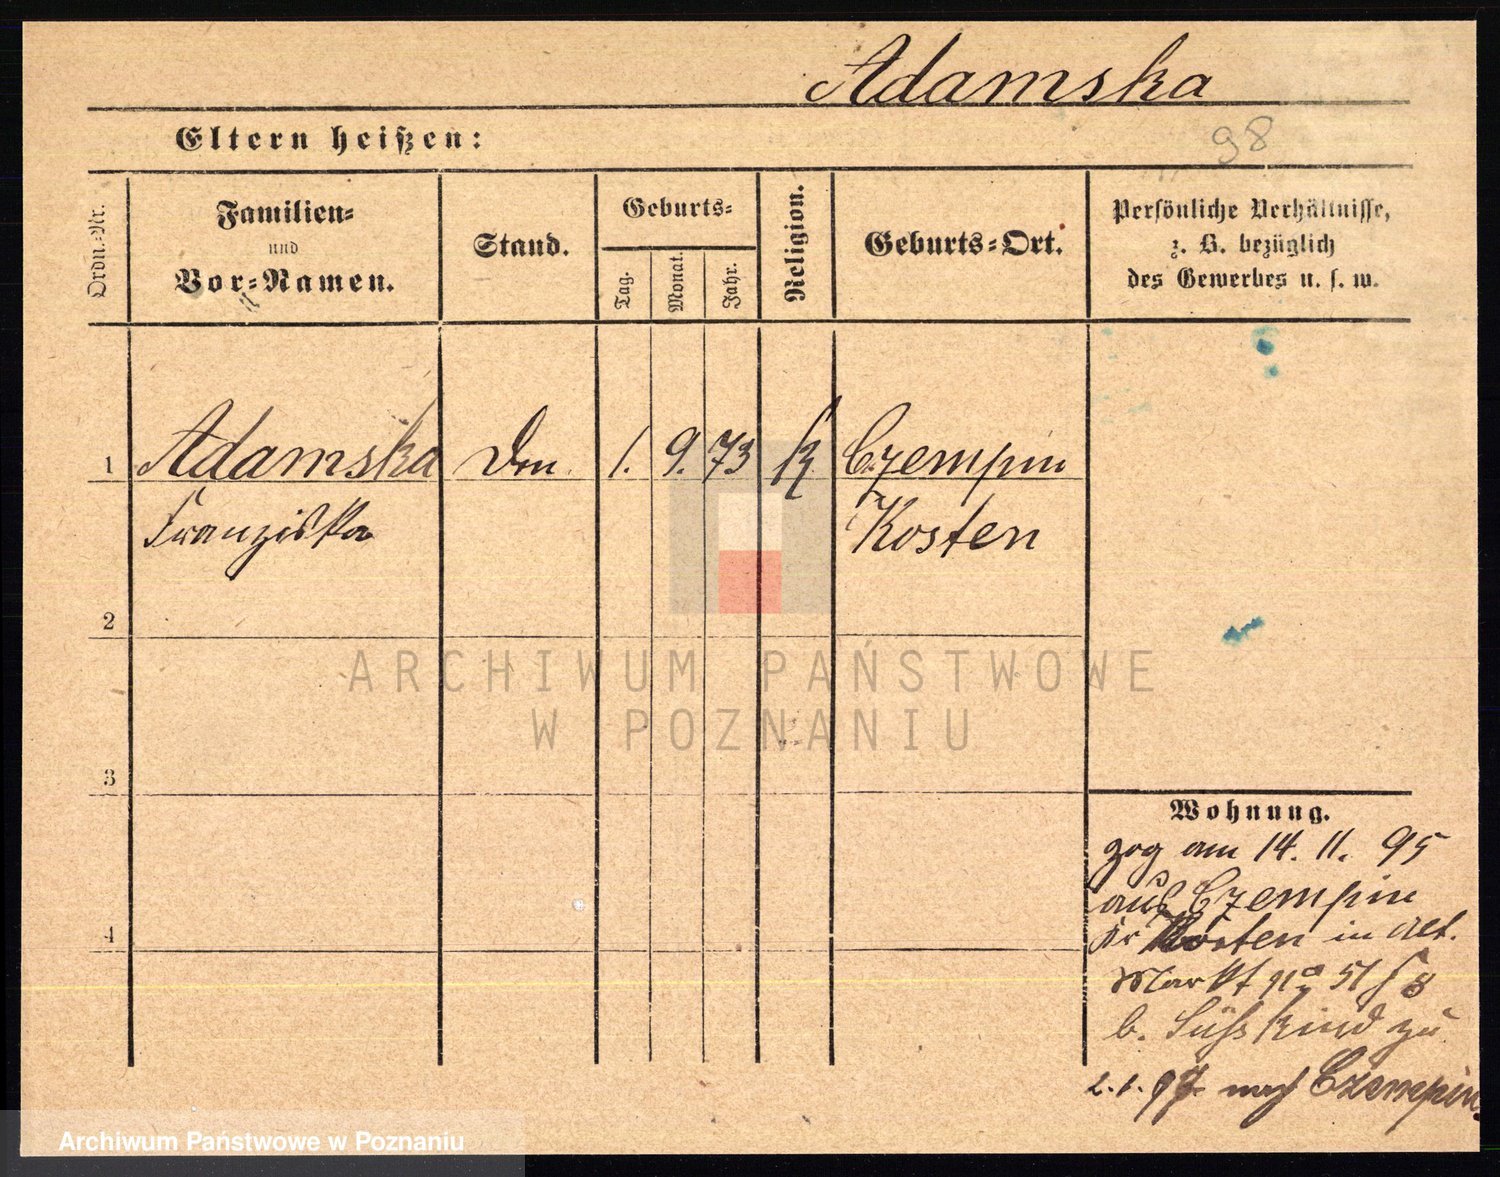 Adamska
98
Eltern heißen:
Ordn.-Nr.
Familien-
und
Vor-Namen.
Stand.
Geburts-
Tag.
Monat.
Jahr.
Religion.
Geburts-Ort.
Persönliche Verhältnisse,
z. B. bezüglich
des Gewerbes u. s. w.
1 Adamska 1. 9. 73 k Czempin
Franziska Kosten
2
3
4
Wohnung.
zog am 14. 11. 95
aus Czempin
Kr Kosten in Alt.
Markt No 51
b. Süßkind zu
2. 1. 97 nach Czempin
ARCHIWUM PAŃSTWOWE
W POZNANIU
Archiwum Państwowe w Poznaniu